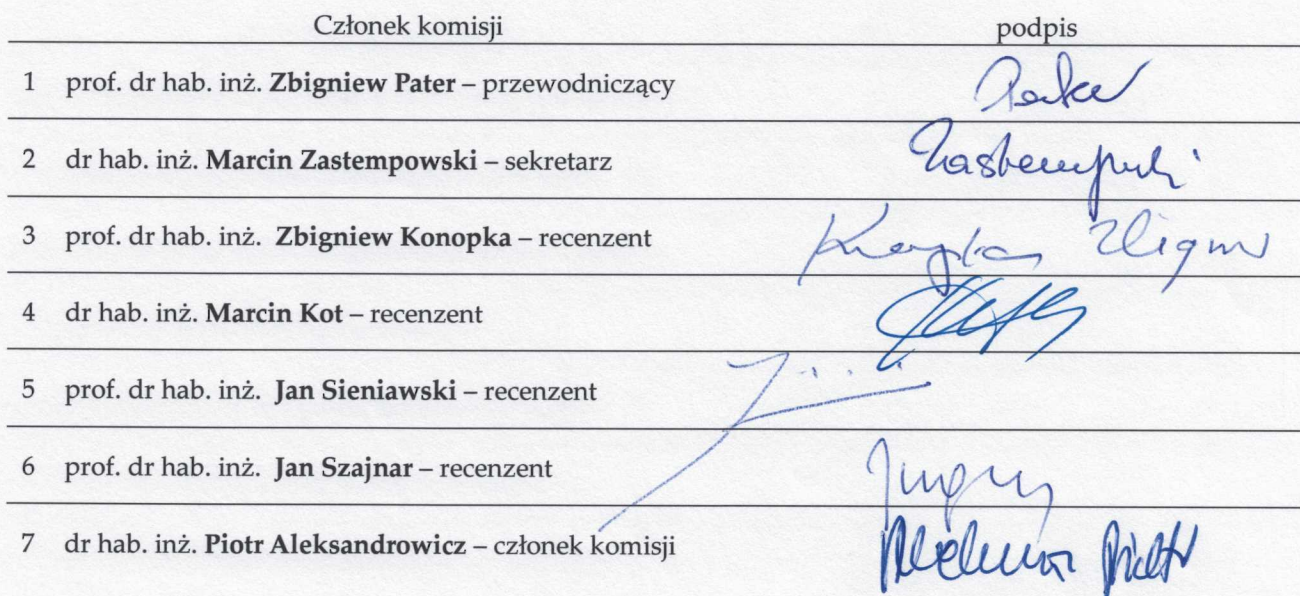 Członek komisji podpis
1 prof. dr hab. inż. Zbigniew Pater – przewodniczący
2 dr hab. inż. Marcin Zastempowski – sekretarz
3 prof. dr hab. inż. Zbigniew Konopka – recenzent
4 dr hab. inż. Marcin Kot – recenzent
5 prof. dr hab. inż. Jan Sieniawski – recenzent
6 prof. dr hab. inż. Jan Szajnar – recenzent
7 dr hab. inż. Piotr Aleksandrowicz – członek komisji